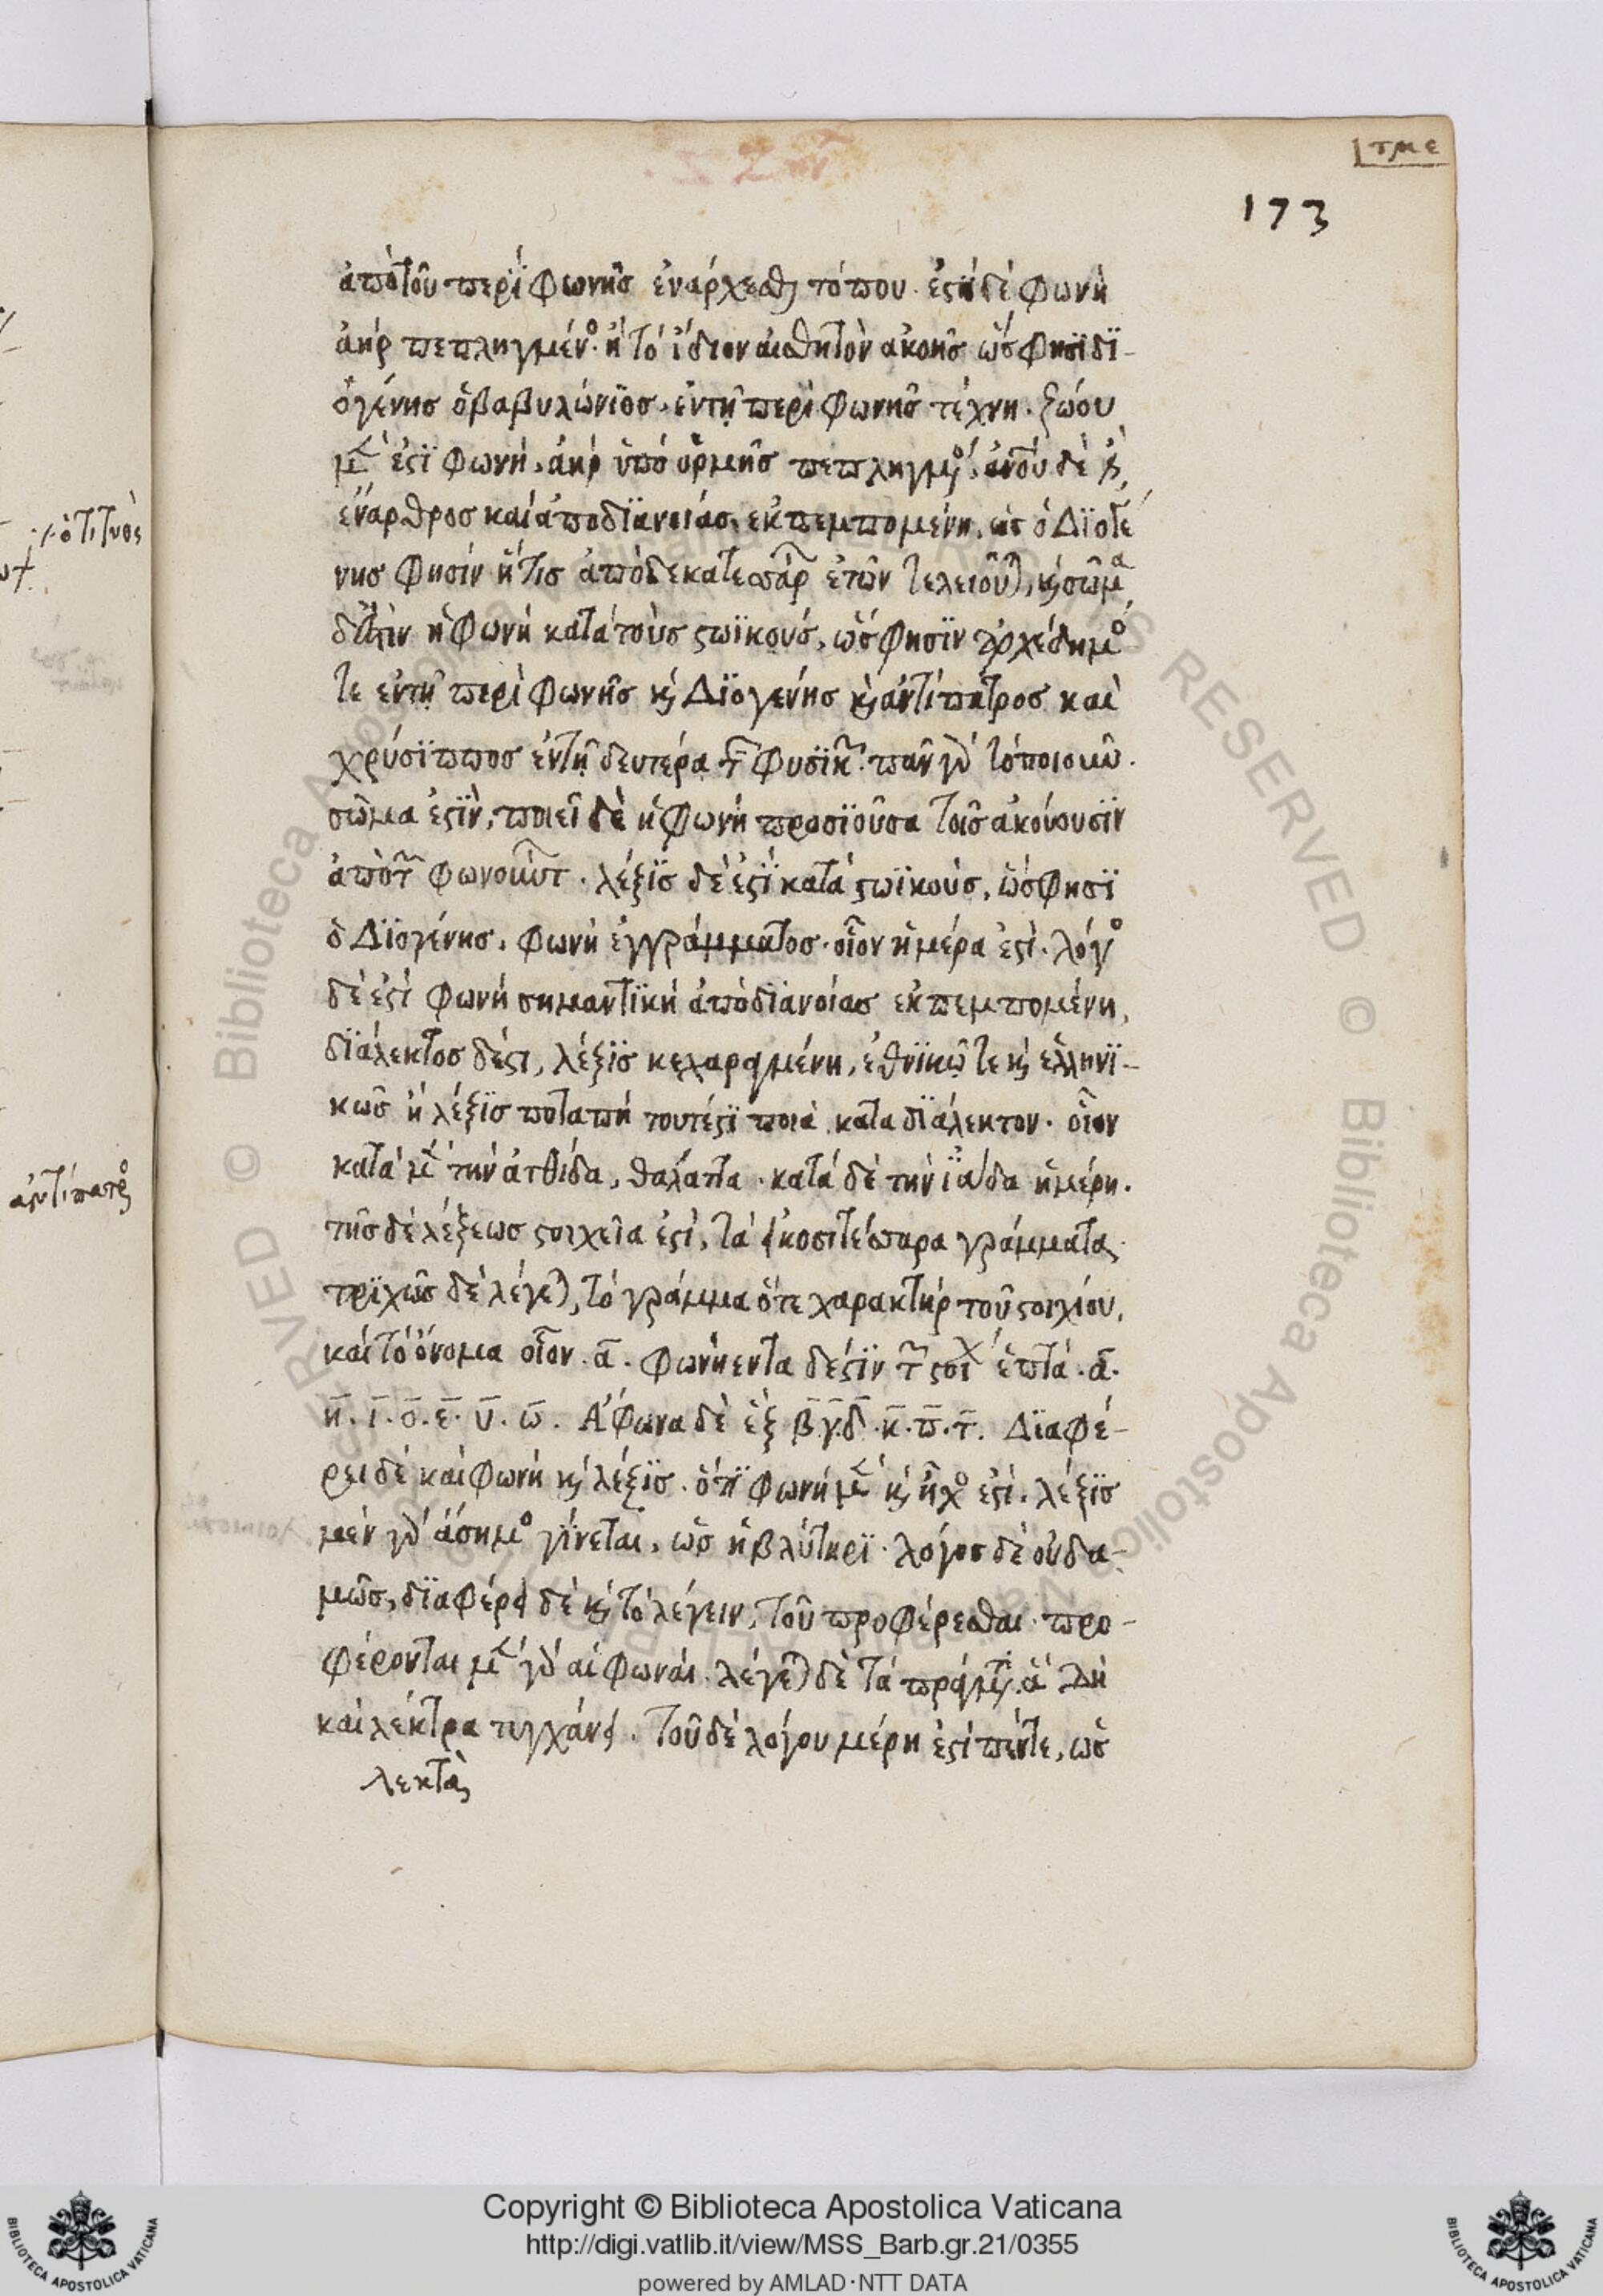 τμε
173
ἀπὸ τοῦ περὶ φωνῆς ἐνάρχεσθαι τόπου. ἔστι δὲ φωνὴ
ἀὴρ πεπληγμένος. ἢ τὸ ἴδιον αἰσθητὸν ἀκοῆς ὥς φησϊ δϊ-
ογένης ὁ βαβυλώνϊος. ἐν τῇ περὶ φωνῆς τέχνῃ. ζώου
μέν ἐστϊ φωνὴ, ἀὴρ ὑπὸ ὁρμῆς πεπληγμένος. ἀνθρώπου δέ ἐστιν
ἔναρθρος καὶ ἀπὸ δϊανοίας ἐκπεμπομένη, ὡς ὁ Δϊογέ
νης φησίν ἥτις ἀπὸ δεκατεσσάρων ἐτῶν τελειοῦται, καὶ σῶμα
δ᾽ ἐστὶν ἡ φωνὴ κατὰ τοὺς στωϊκούς, ὥς φησϊν ἀρχέδημος
τε ἐν τῇ περὶ φωνῆς καὶ Δϊογένης καὶ ἀντίπατρος καὶ
χρύσϊππος ἐν τῇ δευτέρᾳ τῶν φυσϊκῶν. πᾶν γὰρ τὸ ποιοῦν
σῶμα ἐστϊν, ποιεῖ δὲ ἡ φωνὴ προσϊοῦσα τοῖς ἀκούουσϊν
ἀπὸ τῶν φωνούντων. λέξϊς δέ ἐστϊ κατὰ στωϊκούς, ὥς φησϊ
ὁ Δϊογένης. φωνὴ ἐγγράμματος. οἷον ἡμέρα ἐστί. λόγος
δέ ἐστί φωνὴ σημαντϊκή ἀπὸ δϊανοίας ἐκπεμπομένη,
δϊάλεκτος δέ ἐστι, λέξϊς κεχαραγμένη, ἐθνϊκῶς τε καὶ ἑλληνϊ-
κῶς ἢ λέξϊς ποταπή τουτέστϊ ποιὰ κατὰ δϊάλεκτον. οἷον
κατὰ μὲν τὴν ἀτθίδα, θαλάττα. κατὰ δὲ τὴν ϊάδα ἡμέρη.
τῆς δὲ λέξεως στοιχεῖα ἐστί, τὰ εἰκοσιτέσσαρα γράμματα,
τρϊχῶς δὲ λέγεται, τὸ γράμμα ὅ τε χαρακτὴρ τοῦ στοιχίου,
καὶ τὸ ὄνομα οἷον. α. φωνήεντα δέ ἐστϊν τῶν στοιχείων ἑπτά. α.
η. ι. ο. ε. υ. ω. Ἄφωνα δὲ ἓξ β. γ. δ. κ. π. τ. Δϊαφέ-
ρει δὲ καὶ φωνὴ καὶ λέξϊς. ὅτϊ φωνὴ μὲν καὶ ἦχος ἐστί. λέξϊς
μὲν γὰρ ἄσημος γίνεται, ὡς ἡ βλύτηρϊ. λόγος δὲ οὐδα-
μῶς, δϊαφέρει δὲ καὶ τὸ λέγειν, τοῦ προφέρεσθαι. προ-
φέρονται μὲν γὰρ αἱ φωναί. λέγεται δὲ τὰ πράγματα. ἃ δὴ
καὶ λέκτρα τυγχάνει. Τοῦ δὲ λόγου μέρη ἐστί πέντε, ὡς
λεκτὰ
ὁ τιτυὸς
ἀντίπατρος
Copyright © Biblioteca Apostolica Vaticana
http://digi.vatlib.it/view/MSS_Barb.gr.21/0355
powered by AMLAD·NTT DATA